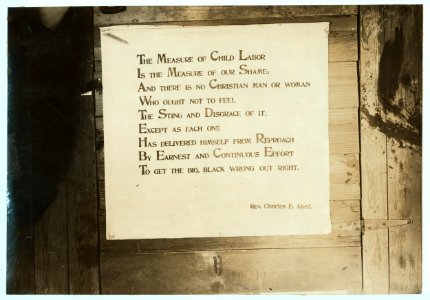 The Measure of Child Labor
Is the Measure of our Shame;
And there is no Christian man or woman
Who ought not to feel
The Sting and Disgrace of it,
Except as each one
Has delivered himself from Reproach
By Earnest and Continuous Effort
To get the big, black wrong out right.
Rev. Charles F. Aked.